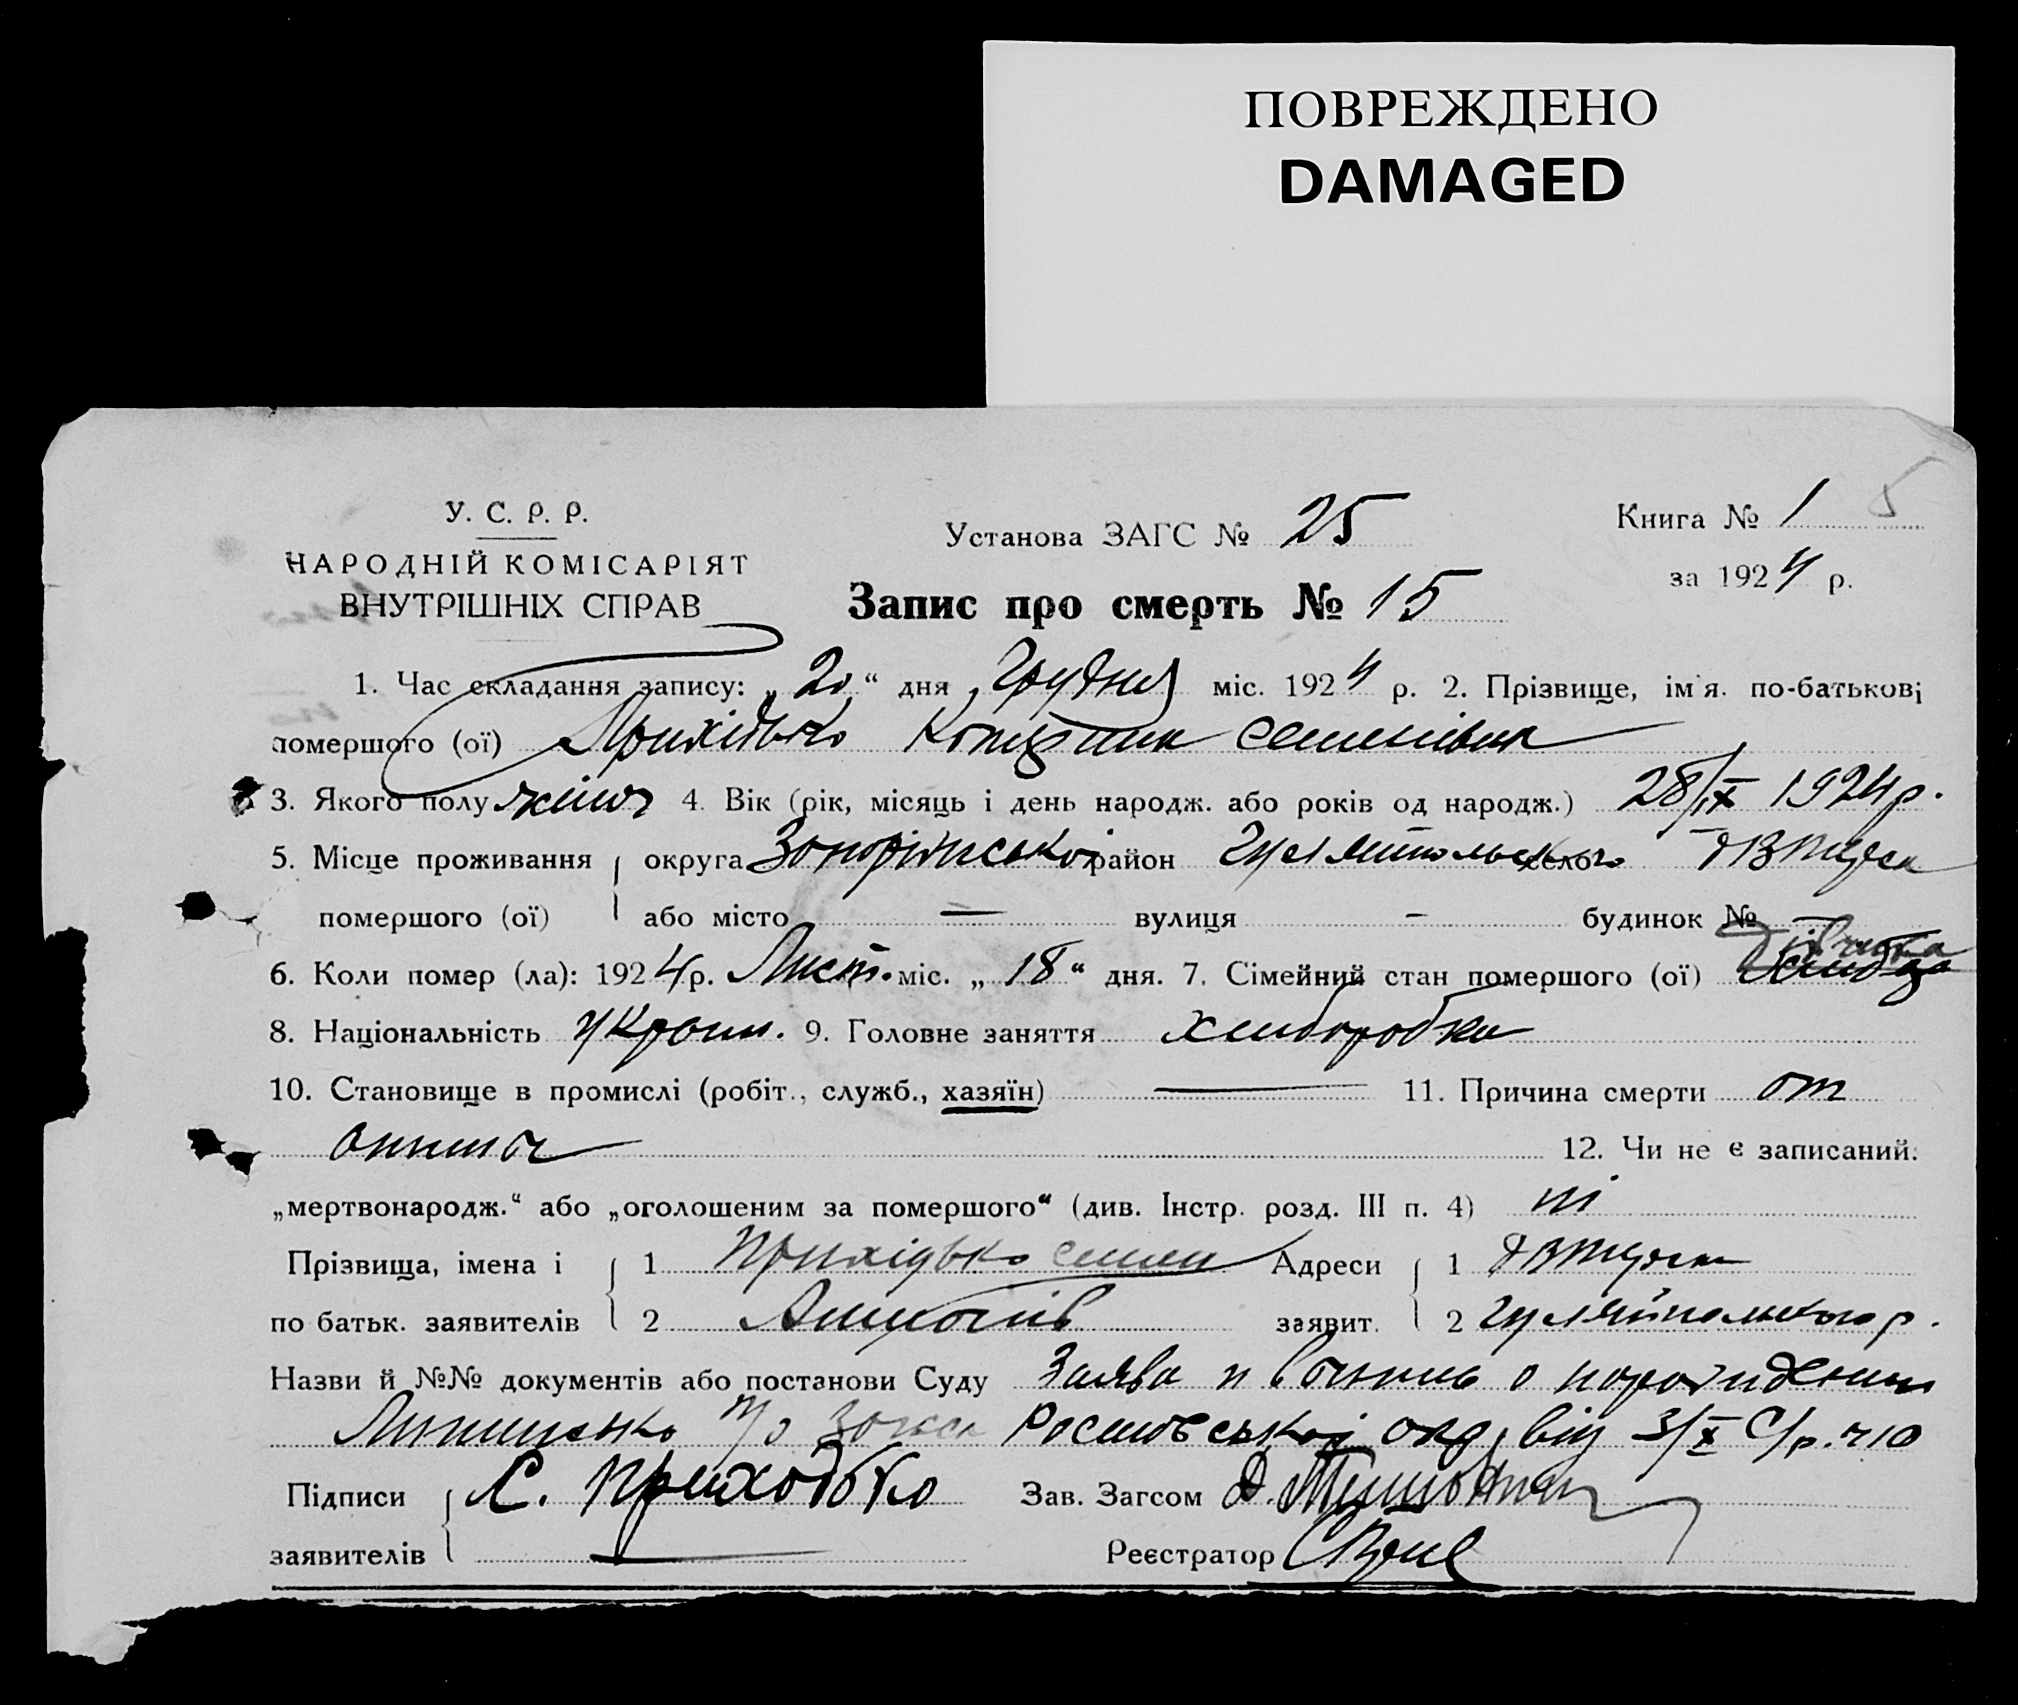 ПОВРЕЖДЕНО
DAMAGED
У. С. Р. Р.
НАРОДНІЙ КОМІСАРІЯТ
ВНУТРІШНІХ СПРАВ
Установа ЗАГС № 25
Книга № 1 5
за 1924 р.
Запис про смерть № 15
1. Час складання запису: „20“ дня Грудня міс. 1924 р. 2. Прізвище, ім'я. по-батькові
помершого (ої) Прихідько Семенівна
3. Якого полу жіноч 4. Вік (рік, місяць і день народж. або років од народж.) 28/IX 1924 р.
5. Місце проживання округа Запоріжської район Гуляйпольського село
помершого (ої) або місто — вулиця - будинок № —
6. Коли помер (ла): 1924 р. Лист. міс. „18“ дня. 7. Сімейний стан помершого (ої) Дівчина
8. Національність Україн. 9. Головне заняття хліборобка
10. Становище в промислі (робіт., служб., хазяїн) — 11. Причина смерти от
12. Чи не є записаний:
„мертвонародж.“ або „оголошеним за помершого“ (див. Інстр. розд. III п. 4) ні
Прізвища, імена і 1 Прихідько Семен Адреси 1
по батьк. заявителів 2 заявит. 2 Гуляйпольського р.
Назви й №№ документів або постанови Суду Заява и о
Ростовської окр. від 3/X с/р. ч 10
Підписи С. Приходько Зав. Загсом
заявителів — Реєстратор